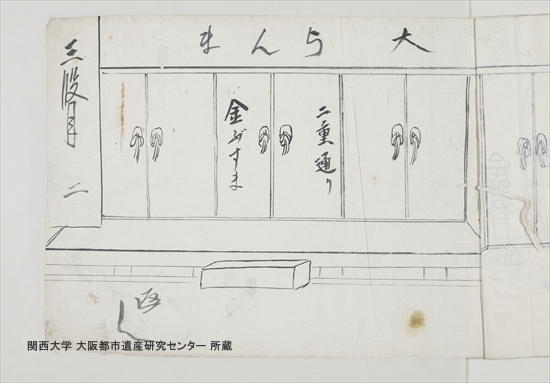 三段目
二
大らんま
二重通り
金ぶすま
返し
関西大学 大阪都市遺産研究センター 所蔵